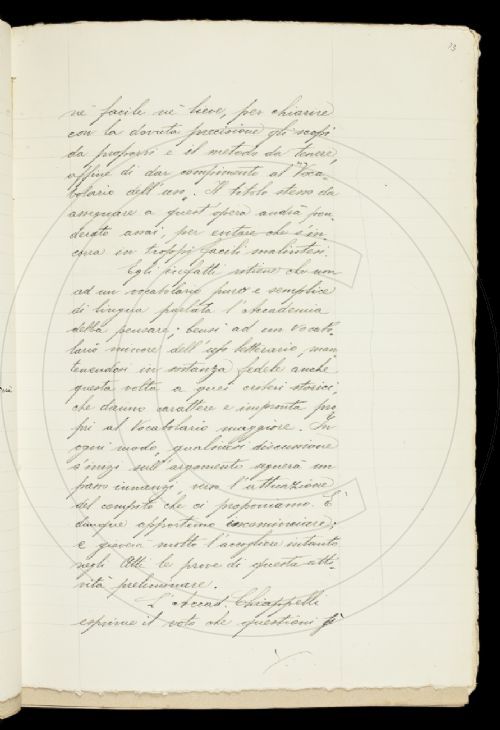 13
nè facile nè lieve, per chiarire
con la dovuta precisione gli scopi
da proporsi e il metodo da tenere,
affine di dar compimento al "Voca-
bolario dell'uso". Il titolo stesso da
assegnare a quest'opera andrà pon-
derato assai, per evitare che s'in-
corra in troppo facili malintesi.
Egli infatti ritiene che non
ad un vocabolario puro e semplice
di lingua parlata l'Accademia
debba pensare; bensì ad un Vocabo-
lario minore dell'uso letterario, man-
tenendosi in sostanza fedele anche
questa volta a quei criteri storici,
che danno carattere e impronta pro-
pri al Vocabolario maggiore. In
ogni modo, qualsiasi discussione
s'inizi sull'argomento segnerà un
passo innanzi, verso l'attuazione
del compito che ci proponiamo. È
dunque opportuno incominciare;
e gioverà molto l'accogliere intanto
negli Atti le prove di questa atti-
vità preliminare.
L'Accad. Chiappelli
esprime il voto che questioni